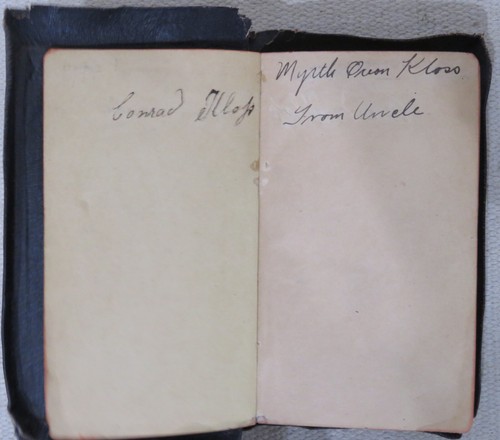 Conrad Kloss
Myrtle Orem Kloss
From Uncle